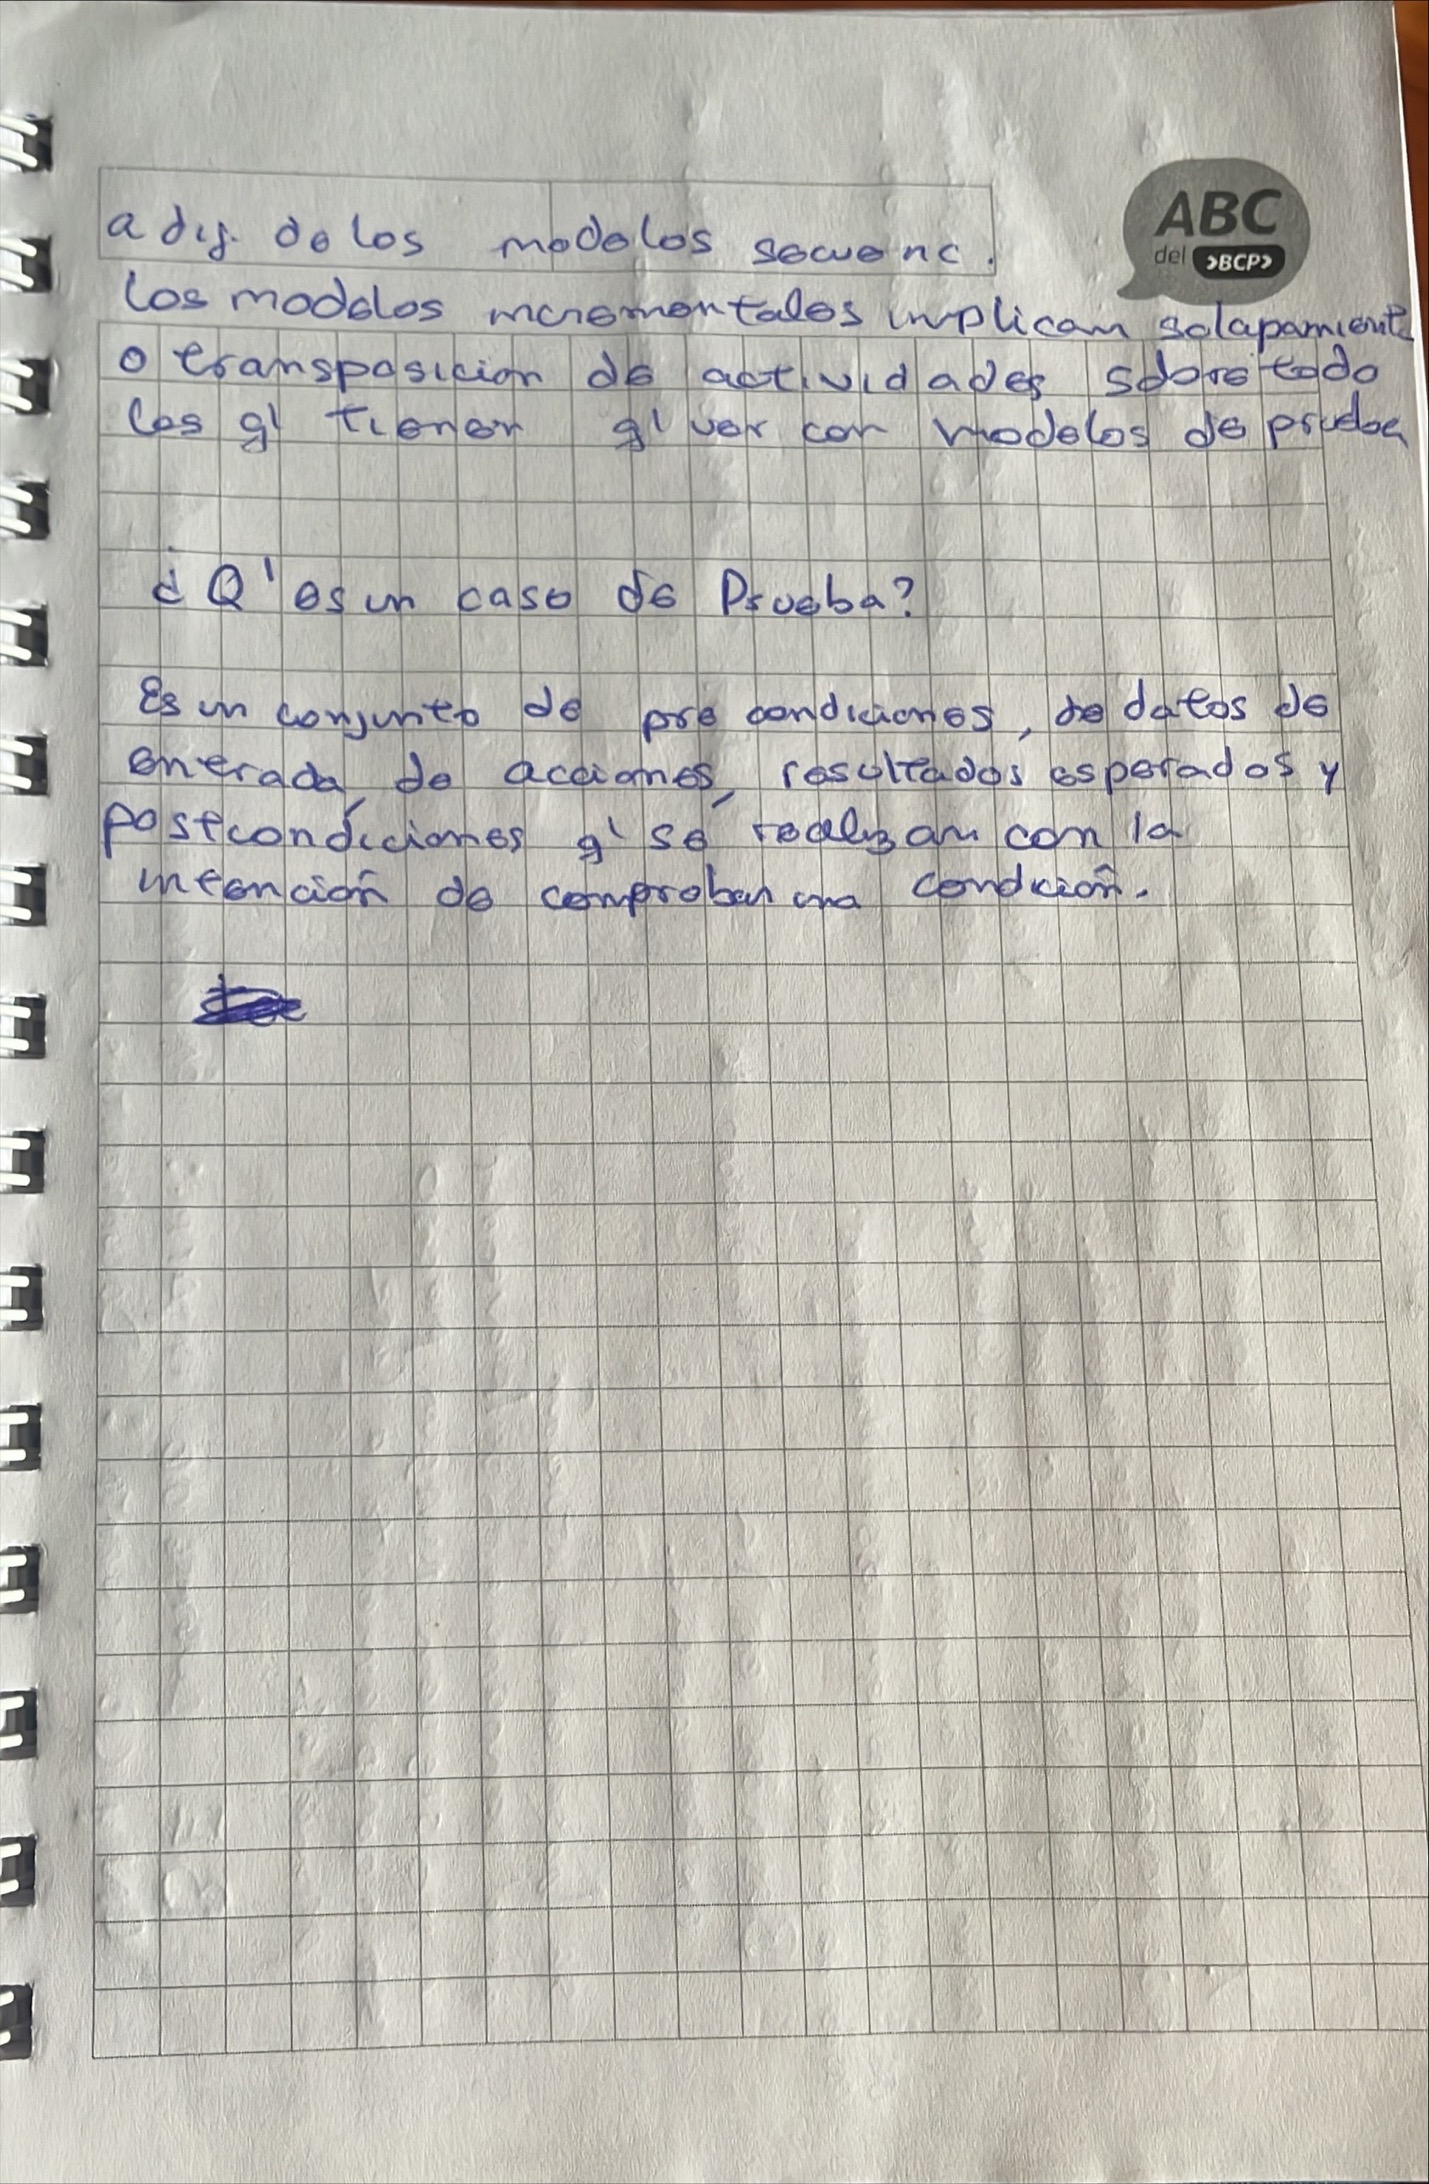 a dif. de los modelos secuenc.
ABC
del >BCP>
los modelos incrementales implican solapamiento
o transposición de actividades sobre todo
los q' tienen q' ver con modelos de prueba
¿Q' es un caso de Prueba?
Es un conjunto de pre condiciones, de datos de
entrada, de acciones, resultados esperados y
postcondiciones q' se realizan con la
intención de comprobar una condición.